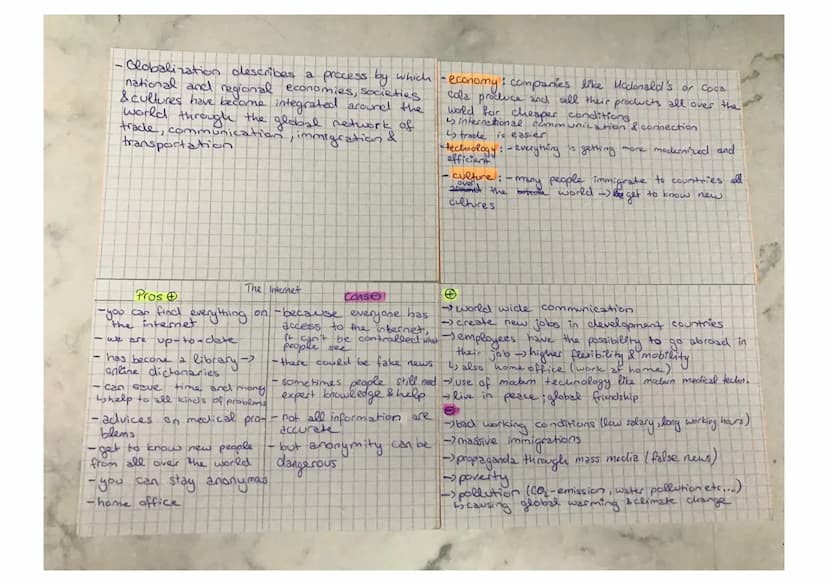 - Globalization describes a process by which
national and regional economies, societies
& cultures have become integrated around the
world through the global network of
trade, communication, immigration &
transportation
- economy: companies like Mcdonald's or Coca
Cola produce and sell their products all over the
world for cheaper conditions
↳ international communication & connection
↳ trade is easier
- technology: - everything is getting more modernized and
efficient
- culture: - many people immigrate to countries all
over the world → get to know new
cultures
The Internet
Pros ⊕
- you can find everything on
the internet
- we are up-to-date
- has become a library →
online dictionaries
- can save time and money
↳ help to all kinds of problems
- advices on medical pro-
blems
- get to know new people
from all over the world
- you can stay anonymus
- home office
Cons ⊖
- because everyone has
access to the internet,
it can't be controlled what
people see
- there could be fake news
- sometimes people still need
expert knowledge & help
- not all information are
accurate
- but anonymity can be
dangerous
⊕
→ world wide communication
→ create new jobs in development countries
→ employees have the possibility to go abroad in
their job → higher flexibility & mobility
↳ also home office (work at home)
→ use of modern technology like modern medical techn.
→ live in peace; global friendship
⊖
→ bad working conditions (low salary, long working hours)
→ massive immigrations
→ propaganda through mass media (false news)
→ poverty
→ pollution (CO₂-emission, water pollution etc...)
↳ causing global warming & climate change